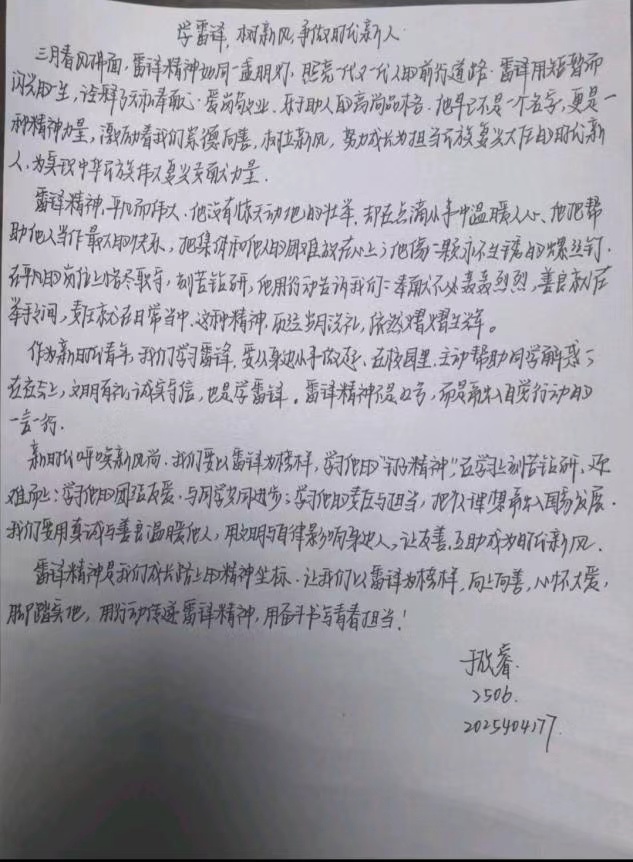 学雷锋,树新风,争做时代新人
三月春风拂面,雷锋精神如同一盏明灯,照亮一代又一代人的前行道路。雷锋用短暂而
闪光的一生,诠释了无私奉献、爱岗敬业、乐于助人的高尚品格。他早已不是一个名字,更是一
种精神力量,激励着我们崇德向善,树立新风,努力成长为担当民族复兴大任的时代新
人,为实现中华民族伟大复兴贡献力量.
雷锋精神,平凡而伟大.他没有惊天动地的壮举,却在点滴小事中温暖人心、他把帮
助他人当作最大的快乐,把集体和他人的困难放在心上;他像一颗永不生锈的螺丝钉.
在平凡的岗位上恪尽职守,刻苦钻研,他用行动告诉我们:奉献不必轰轰烈烈,善良就在
举手之间,责任就在日常当中.这种精神,历经岁月洗礼,依然熠熠生辉。
作为新时代青年,我们学习雷锋,要从身边小事做起,在校园里,主动帮助同学解惑;
在社会上,文明有礼,诚实守信,也是学雷锋.雷锋精神不是口号,而是融入日常行动的
一言一行.
新时代呼唤新风尚.我们要以雷锋为榜样,学习他的"钉子精神",在学习上刻苦钻研、迎
难而上;学习他的团结友爱.与同学共同进步;学习他的责任与担当,把个人理想融入国家发展.
我们要用真诚与善良温暖他人,用文明与自律影响身边人,让友善、互助成为时代新风.
雷锋精神是我们成长路上的精神坐标.让我们以雷锋为榜样,向上向善,心怀大爱,
脚踏实地,用行动传递雷锋精神,用奋斗书写青春担当!
于欣睿.
2506.
2025404177.